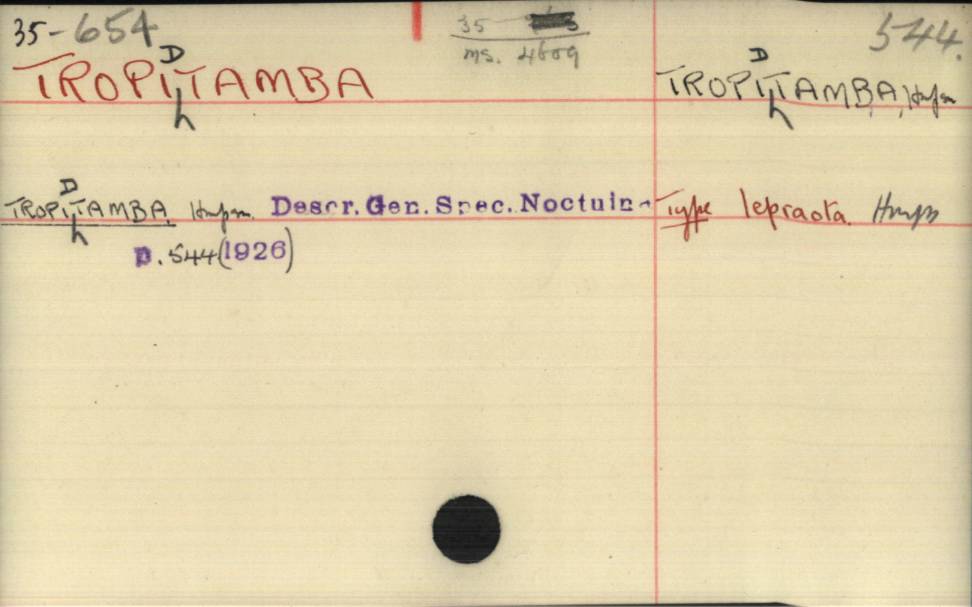 35-654
35
ms. 4609
544.
D
TROPITAMBA
h
D
TROPITAMBA, Hmpsn
h
D
TROPITAMBA Hmpsn. Descr. Gen. Spec. Noctuin-
h
p. 544 (1926)
Type lepraota Hmps